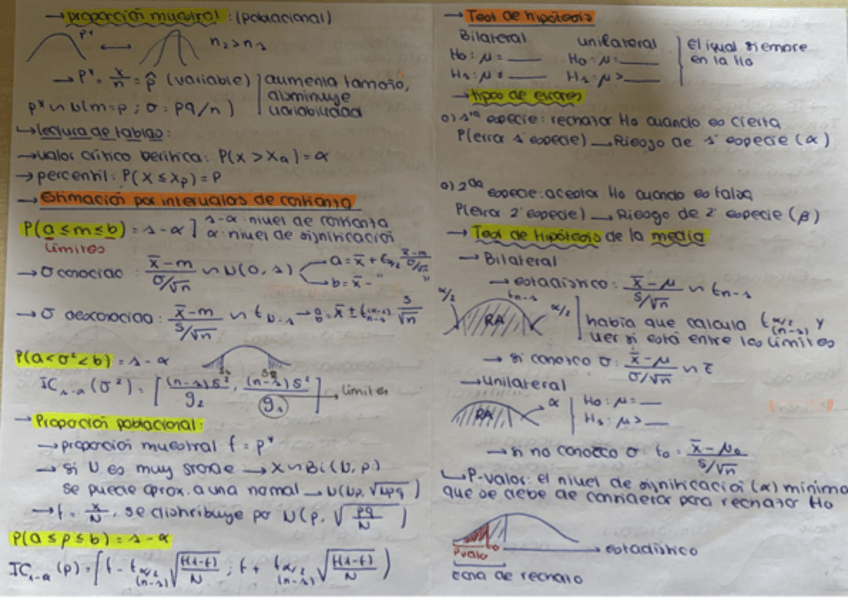 → proporción muestral: (poblacional)
p* ↔ n₂>n₁
→ p* = x/n = p̂ (variable) | aumenta tamaño,
disminuye
p* ~ N(m=p; σ=pq/n) variabilidad
→ lectura de tablas:
→ valor crítico verifica: P(X > Xα) = α
→ percentil: P(X ≤ Xp) = P
→ Estimación por intervalos de confianza
P(a ≤ m ≤ b) = 1-α ] 1-α: niuel de confianza
α: niuel de significación
límites
→ σ conocida: x̄-m / σ/√n ~ N(0,1)
→ σ desconocida: x̄-m / s/√n ~ t
P(a<σ²<b) = 1-α
IC₁₋α (σ²) = [ (n-1)s² / g₂ , (n-1)s² / g₁ ] → límites
→ Proporción poblacional:
→ proporción muestral f = p*
→ si N es muy grande → X ~ Bi(N, p)
se puede aprox. a una normal → N(Np, √Npq)
→ f = x/N, se distribuye por N(p, √pq/N)
P(a ≤ p ≤ b) = 1-α
IC₁₋α (p) = [ f - tα/2 (n-1) √f(1-f)/N ; f + tα/2 (n-1) √f(1-f)/N )
→ Test de hipótesis
Bilateral unilateral | El igual siempre
H₀: μ = ___ H₀: μ = ___ en la H₀
H₁: μ ≠ ___ H₁: μ > ___
→ tipos de errores
o) 1ra especie: rechazar H₀ cuando es cierta
P(error 1ª especie) → Riesgo de 1ª especie (α)
o) 2da especie: aceptar H₀ cuando es falsa
P(error 2ª especie) → Riesgo de 2ª especie (β)
→ Test de hipótesis de la media
→ Bilateral
→ estadístico: x̄-μ / s/√n ~ tn-1
α/2 tn-1 α/2
RA
había que calcula tα/2 (n-1) y
ver si está entre los límites
→ si conozco σ: x̄-μ / σ/√n ~ z
→ unilateral
RA α | H₀: μ = __
H₁: μ > __
→ si no conozco σ: t₀ = x̄-μ₀ / s/√n
↳ P-valor: el niuel de significación (α) mínimo
que se debe de cometer para rechazar H₀
Pvalor → estadístico
zona de rechazo